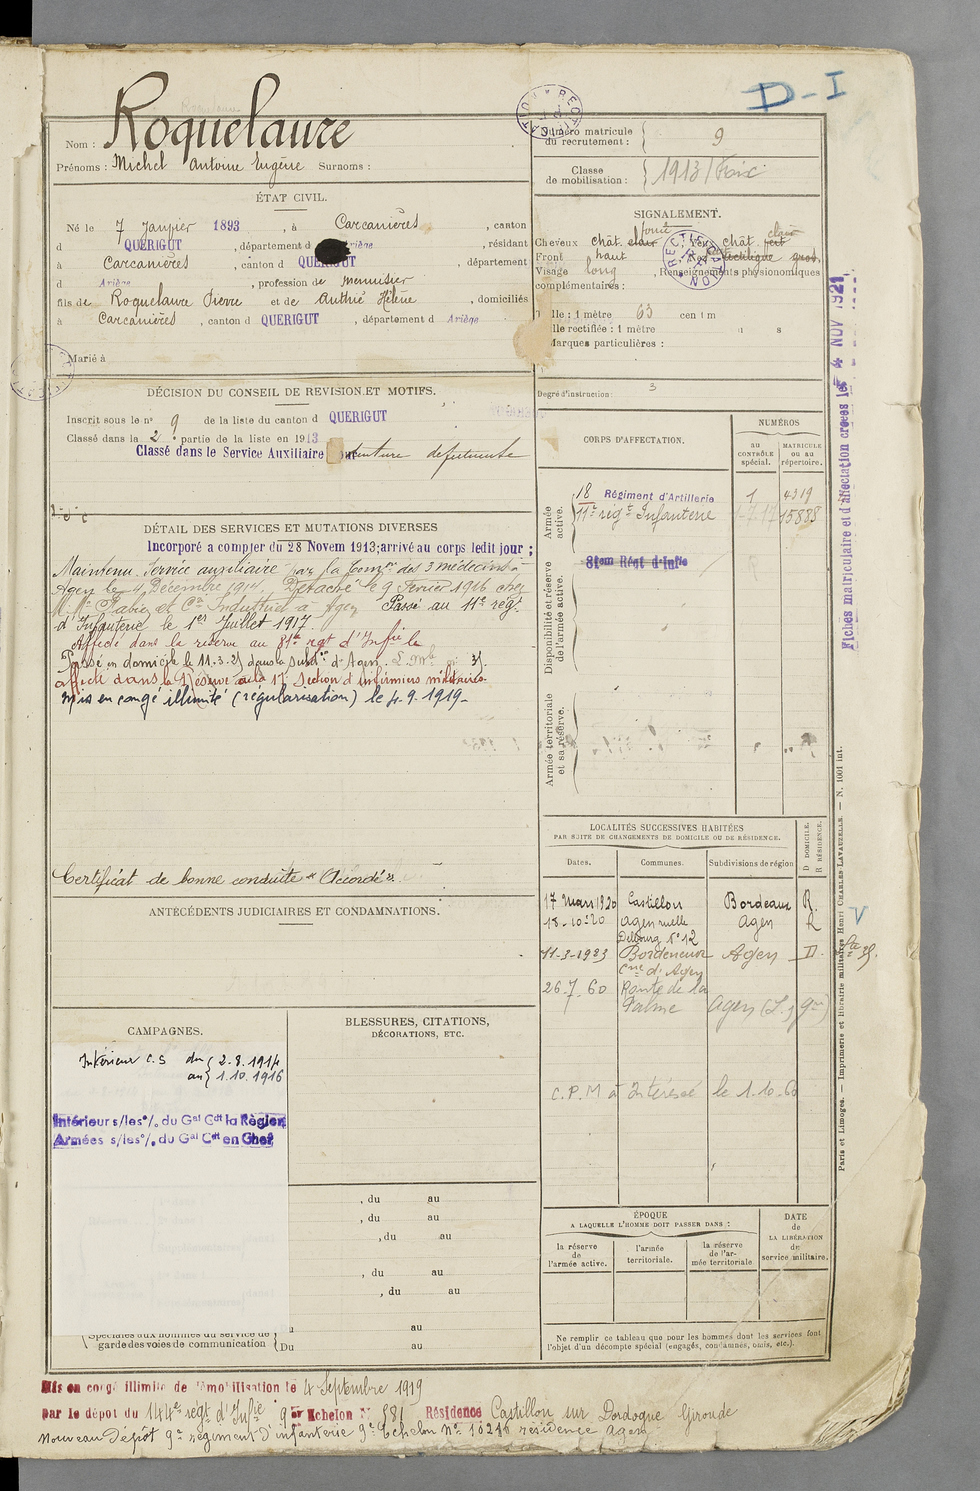 D-I
Nom : Roquelaure
Prénoms : Michel Antoine Eugène Surnoms :
ÉTAT CIVIL.
Né le 7 Janvier 1893, à Carcanières, canton
d QUERIGUT, département d Ariège, résidant
à Carcanières, canton d QUERIGUT, département
d Ariège, profession de menuisier
fils de Roquelaure Pierre et de Authié Hélène, domiciliés
à Carcanières, canton d QUERIGUT, département d Ariège
Marié à
DÉCISION DU CONSEIL DE REVISION ET MOTIFS.
Inscrit sous le n° 9 de la liste du canton d QUERIGUT
Classé dans la 2e partie de la liste en 1913
Classé dans le Service Auxiliaire pour denture defectueuse
DÉTAIL DES SERVICES ET MUTATIONS DIVERSES
Incorporé a compter du 28 Novem 1913; arrivé au corps ledit jour ;
Maintenu Service auxiliaire par la Comon des 3 médecins à
Agen le 4 Décembre 1914. Détaché le 9 Février 1916 chez
Mr Fabre et Cie Industriel à Agen Passé au 11e régt
d'Infanterie le 1er Juillet 1917.
Affecté dans la réserve au 81e rgt d'Infie le
Passé en domicile le 11.3.23 dans la subdon d'Agen
affecté dans la Réserve à la 17e Section d'infirmiers militaires
mis en congé illimité (régularisation) le 4.9.1919
Certificat de bonne conduite « Accordé ».
ANTÉCÉDENTS JUDICIAIRES ET CONDAMNATIONS.
CAMPAGNES.
Intérieur C.S du 2.8.1914
au 1.10.1916
Intérieur s/les o/. du Gal Cdt la Région
Armées s/les o/. du Gal Cdt en Chef
BLESSURES, CITATIONS,
DÉCORATIONS, ETC.
, du au
, du au
, du au
, du au
, du au
au
Spéciales aux hommes du service de
garde des voies de communication Du au
Numéro matricule
du recrutement : 9
Classe
de mobilisation : 1913 / Foix
SIGNALEMENT.
Cheveux chât. clair foncé, Yeux chât. clair
Front haut, Nez rectiligne gros.
Visage long, Renseignements physionomiques
complémentaires :
Taille : 1 mètre 63 centim
Taille rectifiée : 1 mètre
Marques particulières :
Degré d'instruction : 3
CORPS D'AFFECTATION.
NUMÉROS
au
CONTRÔLE
spécial.
MATRICULE
ou au
répertoire.
Armée
active.
18 Régiment d'Artillerie 1 4319
11e régt Infanterie 1-7-17 15888
Disponibilité et réserve
de l'armée active.
81em Régt d'Infie
Armée territoriale
et sa réserve.
LOCALITÉS SUCCESSIVES HABITÉES
PAR SUITE DE CHANGEMENTS DE DOMICILE OU DE RÉSIDENCE.
Dates. Communes. Subdivisions de région
D DOMICILE.
R RÉSIDENCE.
17 Mars 1920 Castillon Bordeaux R.
18-10-20 Agen ruelle Agen R
Delbourg N° 12
11-3-1923 Bordeneuve Agen D.
Cne d'Agen
26.7.60 Route de la
Palme Agen (L. & Gne)
C.P.M à Intéressé le 1.10.60
ÉPOQUE
A LAQUELLE L'HOMME DOIT PASSER DANS :
la réserve
de
l'armée active.
l'armée
territoriale.
la réserve
de l'ar-
mée territoriale
DATE
de
LA LIBÉRATION
du
service militaire.
Ne remplir ce tableau que pour les hommes dont les services font
l'objet d'un décompte spécial (engagés, condamnés, omis, etc.).
Fiches matriculaire et d'affectation créées le 4 NOV 1921
Paris et Limoges. — Imprimerie et librairie militaires Henri CHARLES-LAVAUZELLE. — N. 1001 int.
Mis en congé illimité de démobilisation le 4 Septembre 1919
par le dépôt du 144e régt d'Infie 9 er Echelon N° 881 Résidence Castillon sur Dordogne Gironde
Nouveau Dépôt 9e régiment d'infanterie 9e Echelon N° 10216 résidence Agen